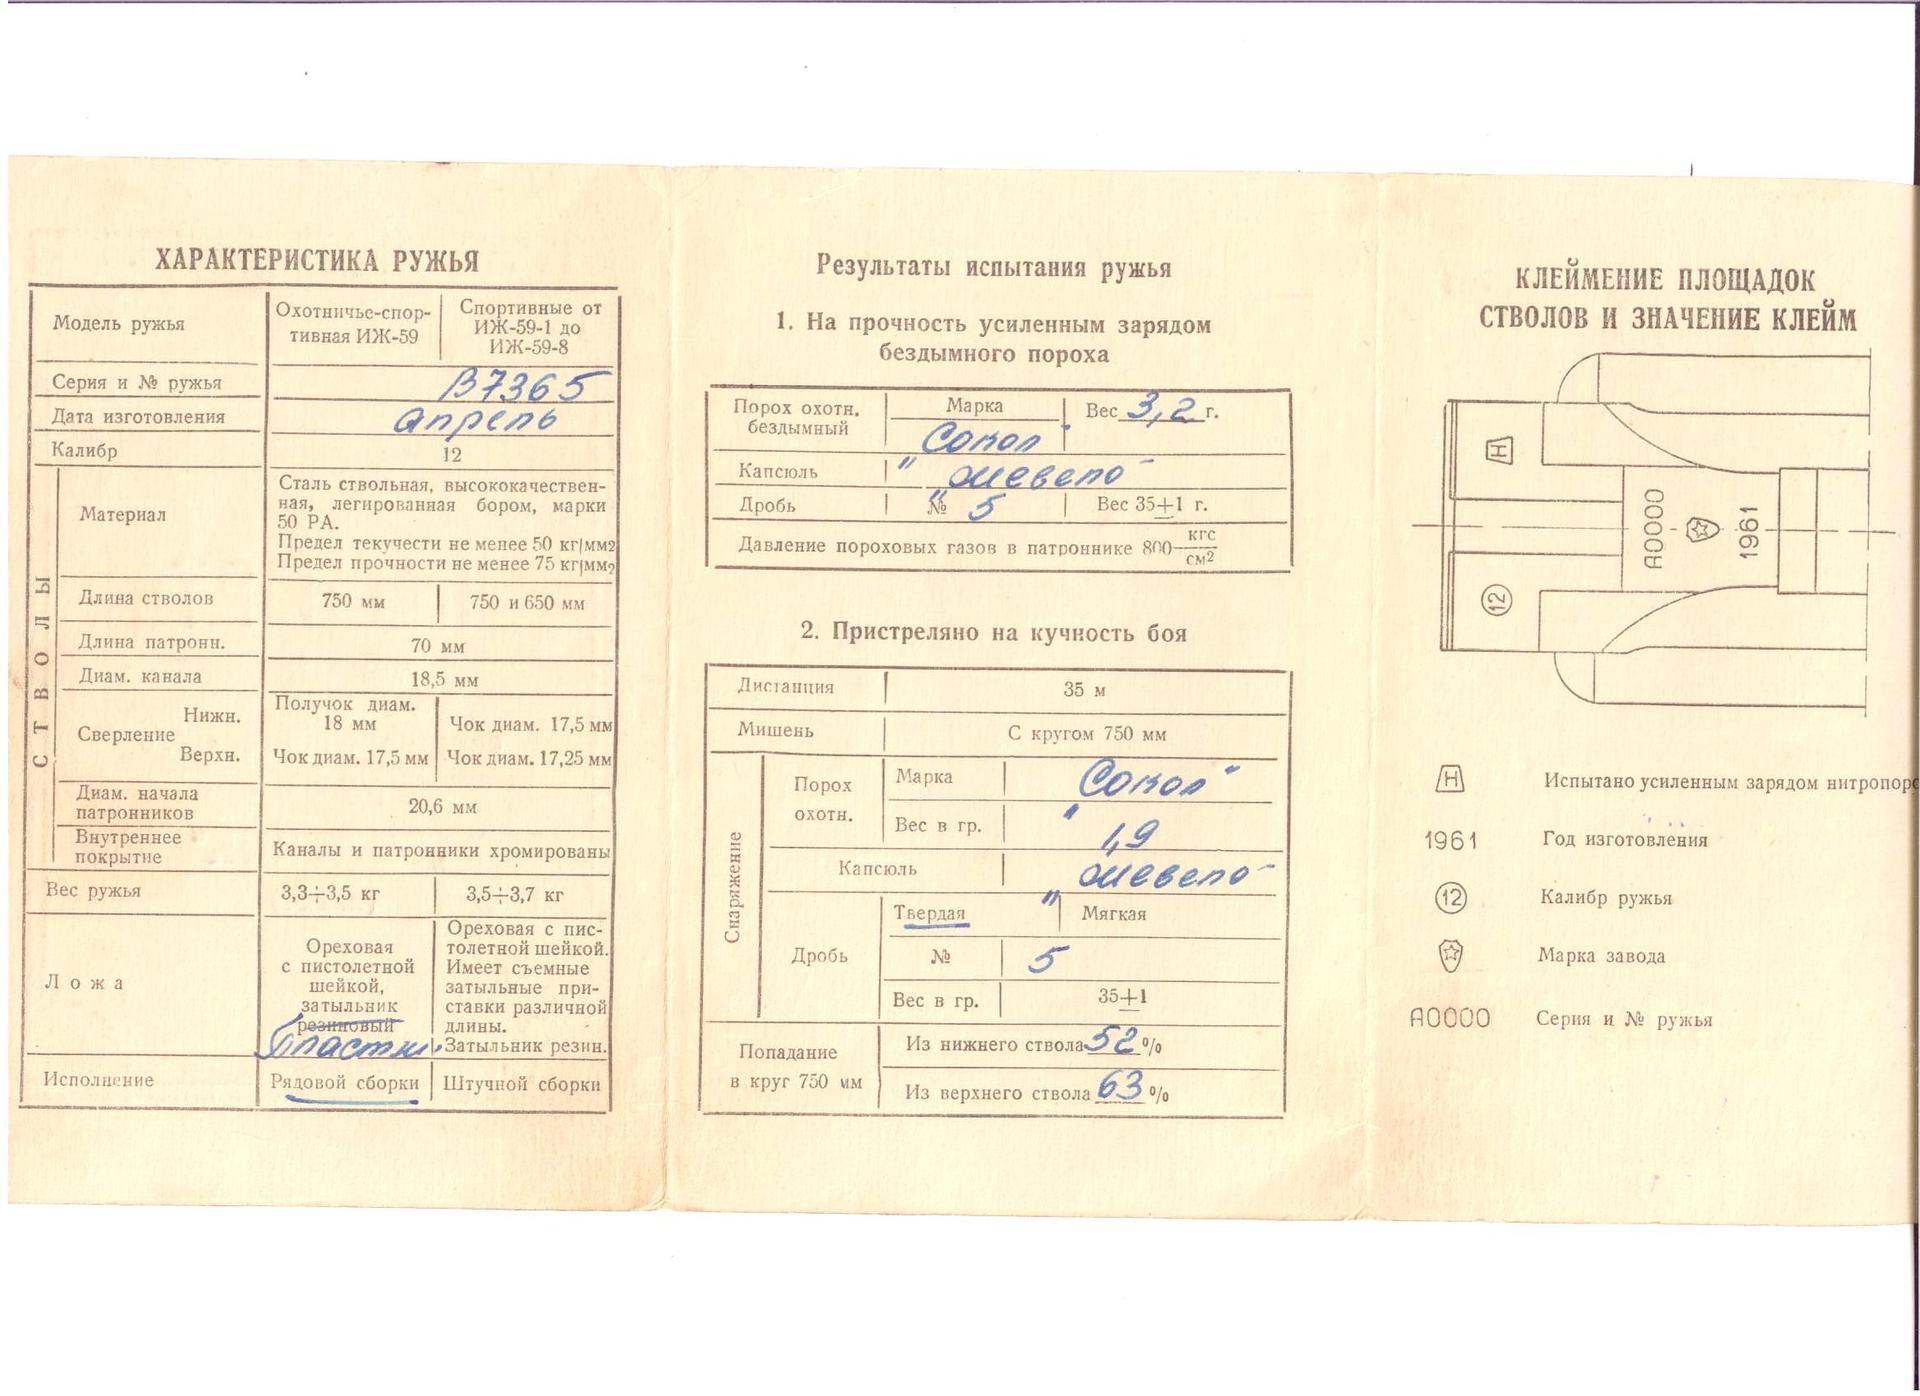 ХАРАКТЕРИСТИКА РУЖЬЯ
Модель ружья
Охотничье-спор-
тивная ИЖ-59
Спортивные от
ИЖ-59-1 до
ИЖ-59-8
Серия и № ружья
В7365
Дата изготовления
апрель
Калибр
12
СТВОЛЫ
Материал
Сталь ствольная, высококачествен-
ная, легированная бором, марки
50 РА.
Предел текучести не менее 50 кг/мм2
Предел прочности не менее 75 кг/мм2
Длина стволов
750 мм
750 и 650 мм
Длина патронн.
70 мм
Диам. канала
18,5 мм
Сверление
Нижн.
Получок диам.
18 мм
Чок диам. 17,5 мм
Верхн.
Чок диам. 17,5 мм
Чок диам. 17,25 мм
Диам. начала
патронников
20,6 мм
Внутреннее
покрытие
Каналы и патронники хромированы
Вес ружья
3,3÷3,5 кг
3,5÷3,7 кг
Ложа
Ореховая
с пистолетной
шейкой,
затыльник
резиновый
Пластм.
Ореховая с пис-
толетной шейкой.
Имеет съемные
затыльные при-
ставки различной
длины.
Затыльник резин.
Исполнение
Рядовой сборки
Штучной сборки
Результаты испытания ружья
1. На прочность усиленным зарядом
бездымного пороха
Порох охотн.
бездымный
Марка
Сокол"
Вес 3,2 г.
Капсюль
"Жевело"
Дробь
№ 5
Вес 35±1 г.
Давление пороховых газов в патроннике 800 кгс/см2
2. Пристреляно на кучность боя
Дистанция
35 м
Мишень
С кругом 750 мм
Снаряжение
Порох
охотн.
Марка
Сокол"
Вес в гр.
" 1,9
Капсюль
Жевело"
Дробь
Твердая
" Мягкая
№
5
Вес в гр.
35±1
Попадание
в круг 750 мм
Из нижнего ствола 52 %
Из верхнего ствола 63 %
КЛЕЙМЕНИЕ ПЛОЩАДОК
СТВОЛОВ И ЗНАЧЕНИЕ КЛЕЙМ
Н
А0000
1961
12
Н Испытано усиленным зарядом нитропоро
1961 Год изготовления
12 Калибр ружья
Марка завода
А0000 Серия и № ружья